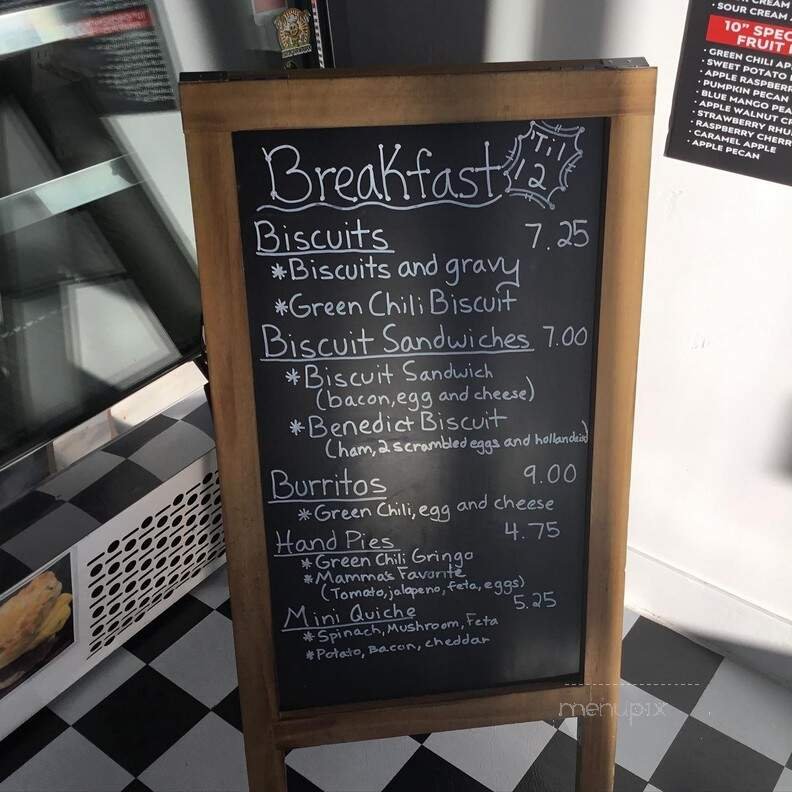 Breakfast
'Til
12
Biscuits 7.25
*Biscuits and gravy
*Green Chili Biscuit
Biscuit Sandwiches 7.00
*Biscuit Sandwich
(bacon, egg and cheese)
*Benedict Biscuit
(ham, 2 scrambled eggs and
Burritos 9.00
*Green Chili, egg and cheese
Hand Pies 4.75
*Green Chili Gringo
*Mamma's Favorite
(Tomato, jalapeno, feta, eggs)
Mini Quiche 5.25
*Spinach, Mushroom, Feta
*Potato, Bacon, cheddar
CREAM
• SOUR CREAM
10" SPEC
FRUIT
• GREEN CHILI AP
• SWEET POTATO
• APPLE RASPBERR
• PUMPKIN PECAN
• BLUE MANGO PEA
• APPLE WALNUT CR
• STRAWBERRY RHU
• RASPBERRY CHERR
• CARAMEL APPLE
• APPLE PECAN
menupix